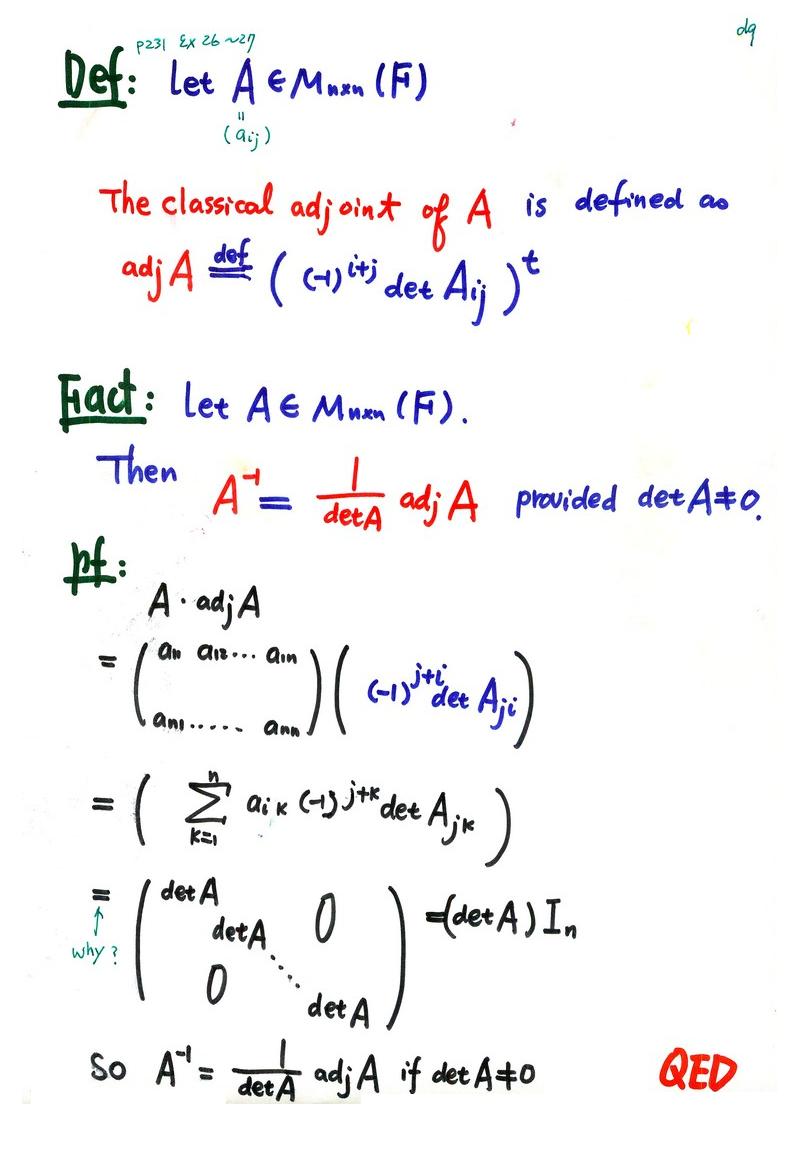 d9
p231 Ex 26~27
Def: Let A ∈ M_{n×n} (F)
=
(a_{ij})
The classical adjoint of A is defined as
adj A \overset{def}{=} ( (-1)^{i+j} det A_{ij} )^t
Fact: Let A ∈ M_{n×n} (F).
Then A^{-1} = \frac{1}{det A} adj A provided det A ≠ 0.
pf:
A · adj A
= ( a_{11} a_{12} ... a_{1n}
a_{n1} ..... a_{nn} ) ( (-1)^{j+i} det A_{ji} )
= ( \sum_{k=1}^{n} a_{ik} (-1)^{j+k} det A_{jk} )
= ( det A 0
det A
0 ⋱
det A ) = (det A) I_n
↑
why?
So A^{-1} = \frac{1}{det A} adj A if det A ≠ 0 QED